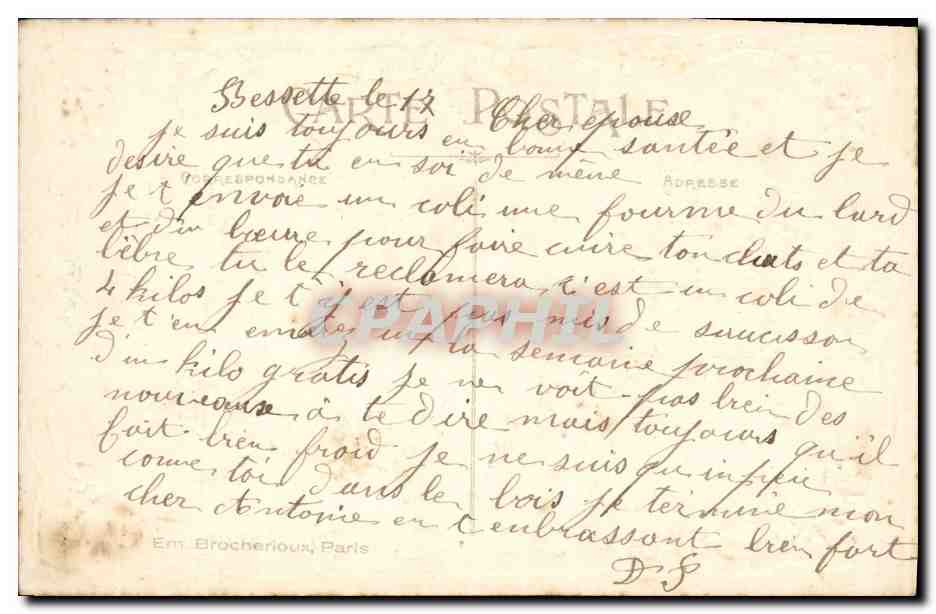 CARTE POSTALE
CORRESPONDANCE
ADRESSE
Bessette le 17
Cher epouse
je suis toujours en bonne santée et je
desire que tu en soi de même
je t envoie un coli une fourme du lard
et du beure pour faire cuire ton chats et ta
lièbre tu le reclamera c'est un coli de
4 kilos je t'y est pas mis de saucisson
je t'en un la semaine prochaine
d'un kilo gratis je ne voit pas bien des
nouveaux à te dire mais toujours qu'il
fait bien froid je ne suis qu
come toi dans le bois je termine mon
cher Antonie en t'enbrassant bien fort
D S
CPAPHIL
Em. Brocherioux, Paris